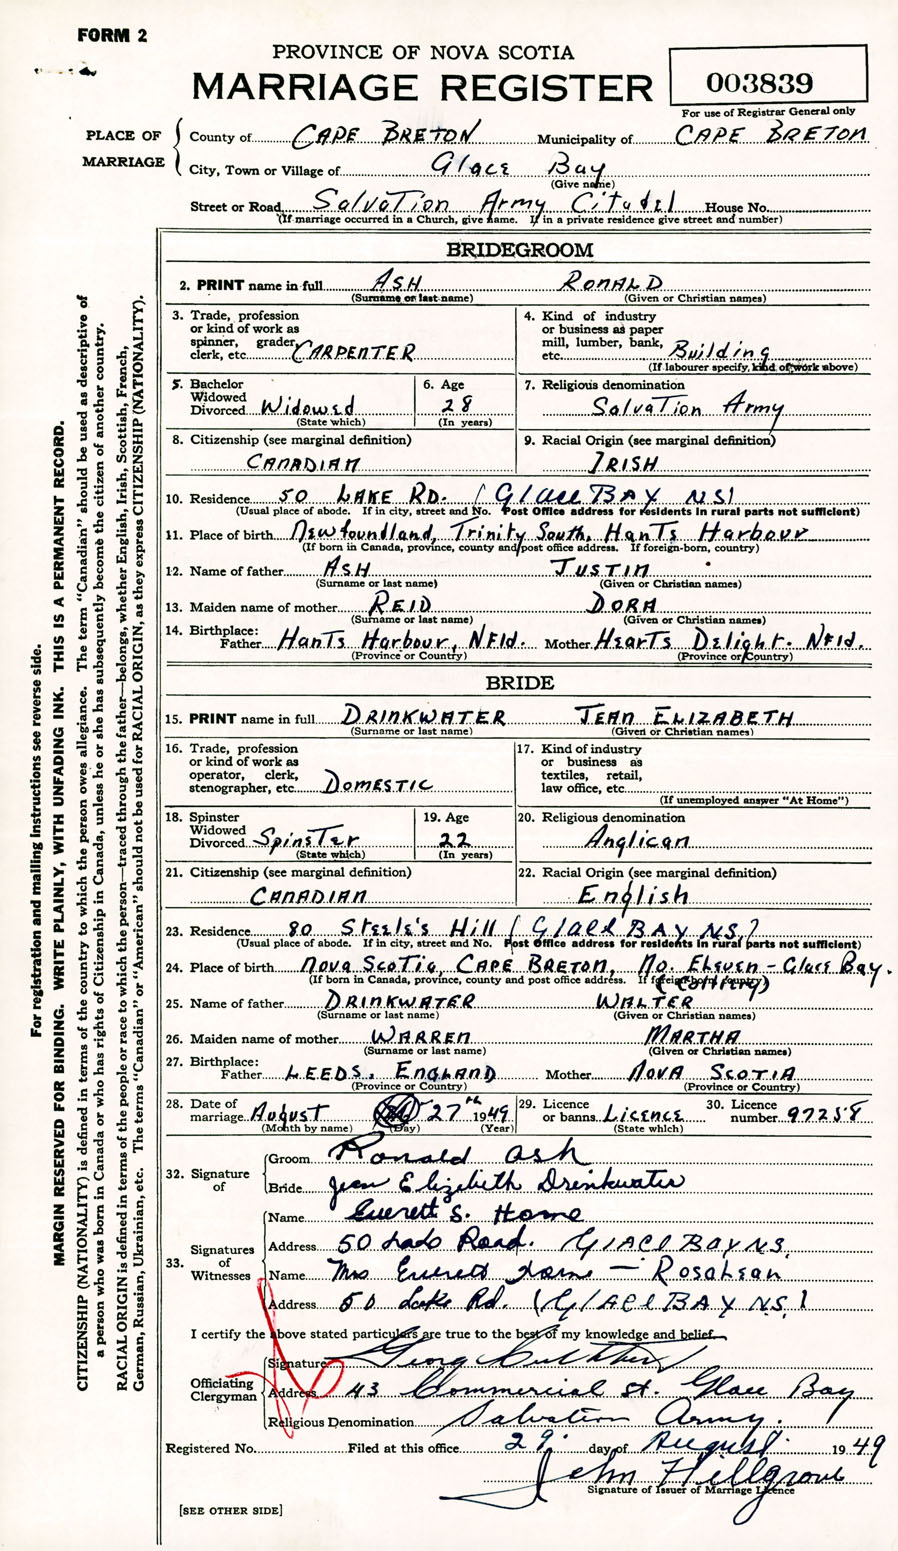 FORM 2
PROVINCE OF NOVA SCOTIA
MARRIAGE REGISTER
003839
For use of Registrar General only
PLACE OF MARRIAGE
County of CAPE BRETON Municipality of CAPE BRETON
City, Town or Village of Glace Bay
(Give name)
Street or Road Salvation Army Citadel House No.
(If marriage occurred in a Church, give name. If in a private residence give street and number)
BRIDEGROOM
2. PRINT name in full ASH RONALD
(Surname or last name) (Given or Christian names)
3. Trade, profession or kind of work as spinner, grader, clerk, etc. CARPENTER
4. Kind of industry or business as paper mill, lumber, bank, etc. Building
(If labourer specify, kind of work above)
5. Bachelor Widowed Divorced Widowed
(State which)
6. Age 28
(In years)
7. Religious denomination Salvation Army
8. Citizenship (see marginal definition) CANADIAN
9. Racial Origin (see marginal definition) IRISH
10. Residence 50 LAKE RD. (GLACE BAY NS)
(Usual place of abode. If in city, street and No. Post Office address for residents in rural parts not sufficient)
11. Place of birth Newfoundland, Trinity South, Hants Harbour
(If born in Canada, province, county and post office address. If foreign-born, country)
12. Name of father ASH JUSTIN
(Surname or last name) (Given or Christian names)
13. Maiden name of mother REID DORA
(Surname or last name) (Given or Christian names)
14. Birthplace: Father Hants Harbour, NFld. Mother Hearts Delight. NFld.
(Province or Country) (Province or Country)
BRIDE
15. PRINT name in full DRINKWATER JEAN ELIZABETH
(Surname or last name) (Given or Christian names)
16. Trade, profession or kind of work as operator, clerk, stenographer, etc. DOMESTIC
17. Kind of industry or business as textiles, retail, law office, etc.
(If unemployed answer "At Home")
18. Spinster Widowed Divorced Spinster
(State which)
19. Age 22
(In years)
20. Religious denomination Anglican
21. Citizenship (see marginal definition) CANADIAN
22. Racial Origin (see marginal definition) English
23. Residence 80 Steele's Hill (GLACE BAY N.S.)
(Usual place of abode. If in city, street and No. Post Office address for residents in rural parts not sufficient)
24. Place of birth Nova Scotia, CAPE BRETON, No. Eleven - Glace Bay.
(If born in Canada, province, county and post office address. If foreign-born country)
(COLLIERY)
25. Name of father DRINKWATER WALTER
(Surname or last name) (Given or Christian names)
26. Maiden name of mother WARREN MARTHA
(Surname or last name) (Given or Christian names)
27. Birthplace: Father LEEDS, ENGLAND Mother NOVA SCOTIA
(Province or Country) (Province or Country)
28. Date of marriage August 27th 1949
(Month by name) (Day) (Year)
29. Licence or banns Licence
(State which)
30. Licence number 97258
32. Signature of
Groom Ronald Ash
Bride Jean Elizabeth Drinkwater
33. Signatures of Witnesses
Name Everett S. Horne
Address 50 Lake Road. GLACE BAY N.S.
Name Mrs Everett Horne — Rosalean
Address 50 Lake Rd. (GLACE BAY N.S.)
I certify the above stated particulars are true to the best of my knowledge and belief.
Officiating Clergyman
Signature
Address 43 Commercial St. Glace Bay
Religious Denomination Salvation Army.
Registered No. Filed at this office 29. day of August. 1949
John Hillgrove
Signature of Issuer of Marriage Licence
[SEE OTHER SIDE]
For registration and mailing instructions see reverse side.
MARGIN RESERVED FOR BINDING. WRITE PLAINLY, WITH UNFADING INK. THIS IS A PERMANENT RECORD.
CITIZENSHIP (NATIONALITY) is defined in terms of the country to which the person owes allegiance. The term "Canadian" should be used as descriptive of
a person who was born in Canada or who has rights of Citizenship in Canada, unless he or she has subsequently become the citizen of another country.
RACIAL ORIGIN is defined in terms of the people or race to which the person—traced through the father—belongs, whether English, Irish, Scottish, French,
German, Russian, Ukrainian, etc. The terms "Canadian" or "American" should not be used for RACIAL ORIGIN, as they express CITIZENSHIP (NATIONALITY).